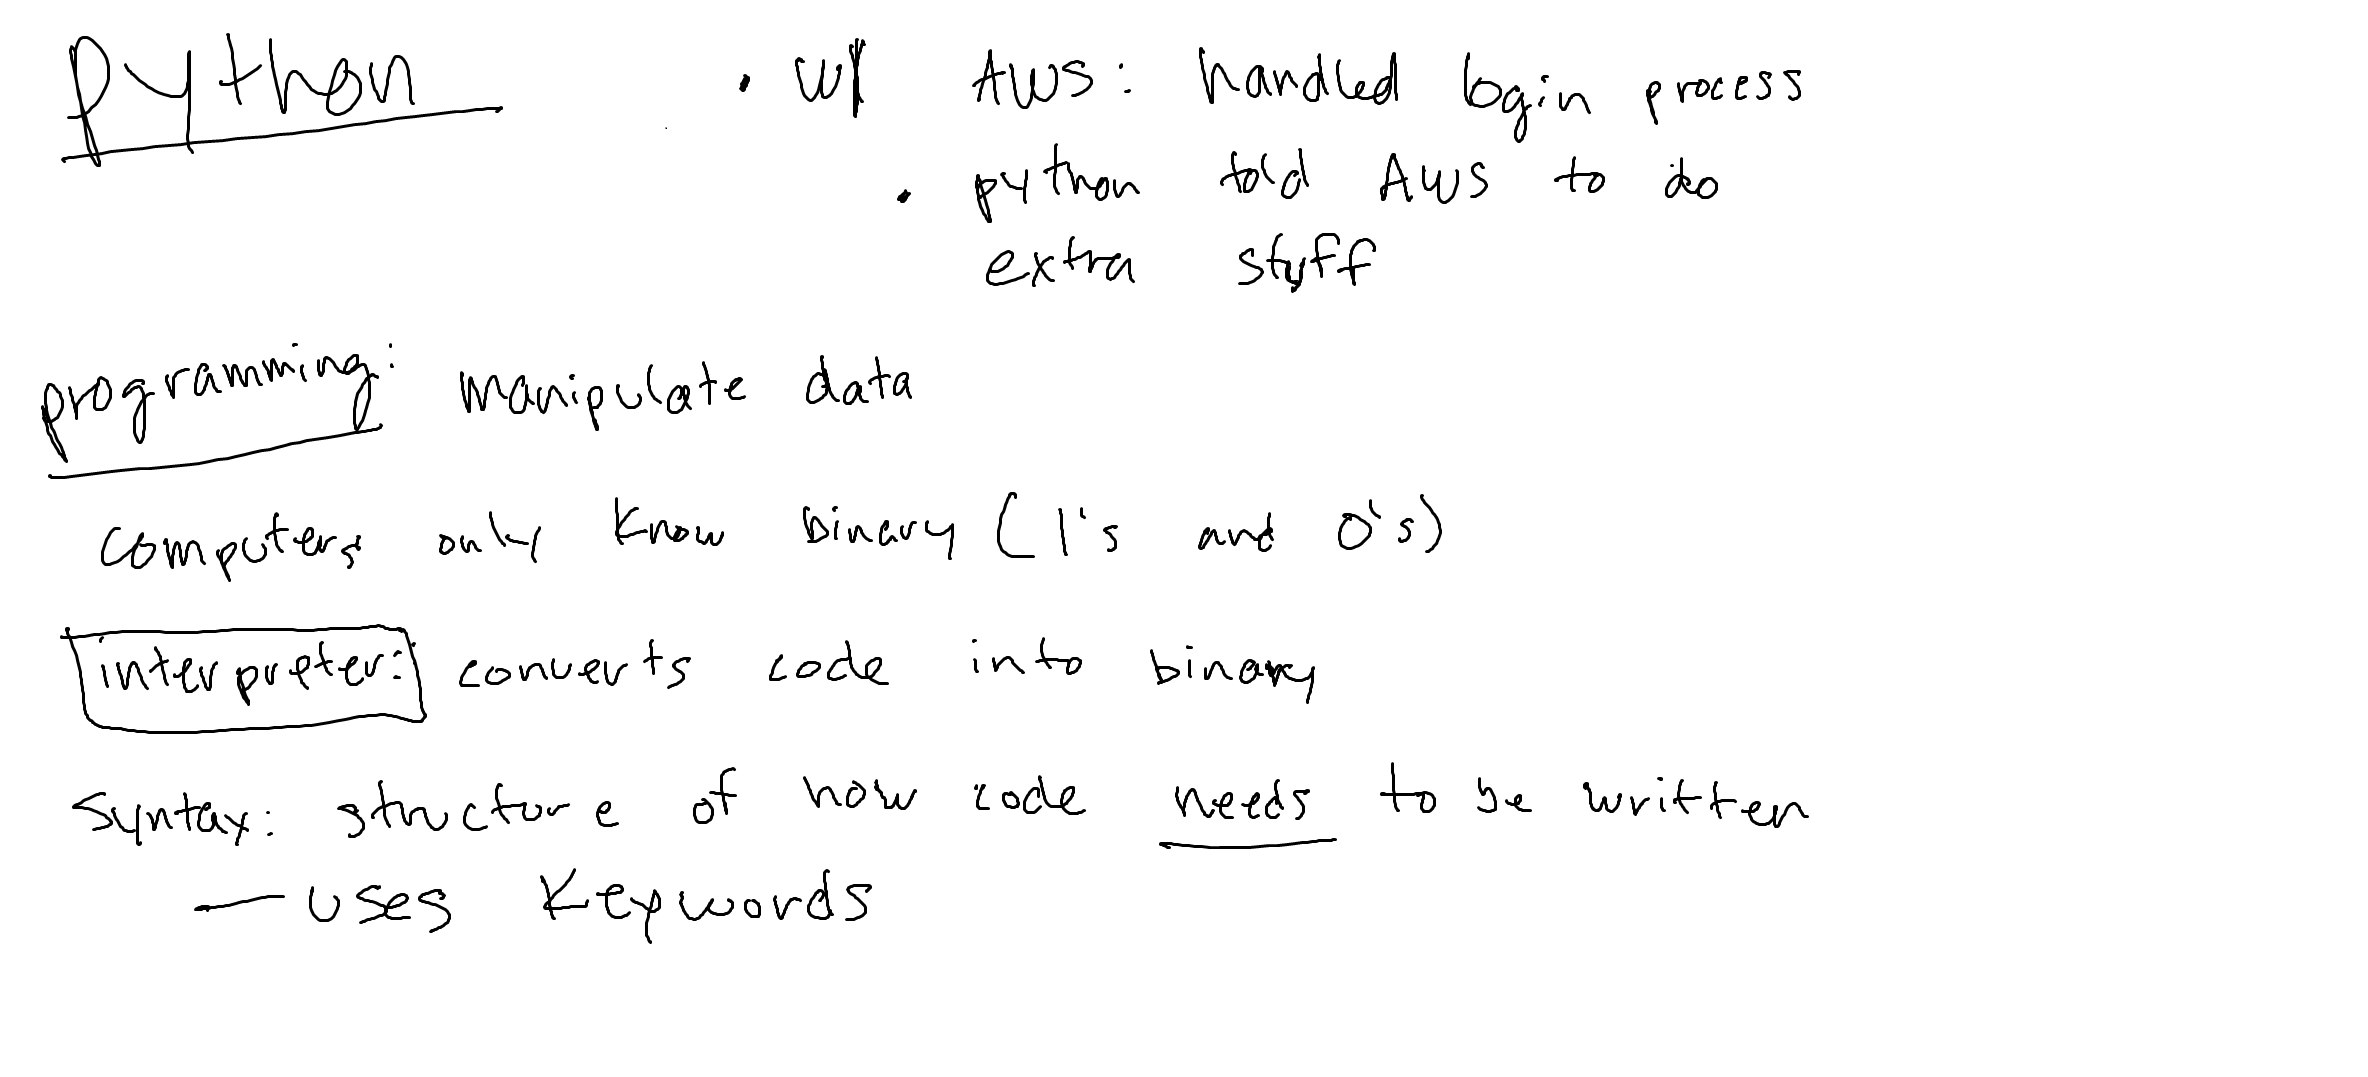 python
• w/ AWS: handled login process
• python told AWS to do
extra stuff
programming: manipulate data
computers only know binary (1's and 0's)
interpreter: converts code into binary
Syntax: structure of how code needs to be written
— uses keywords